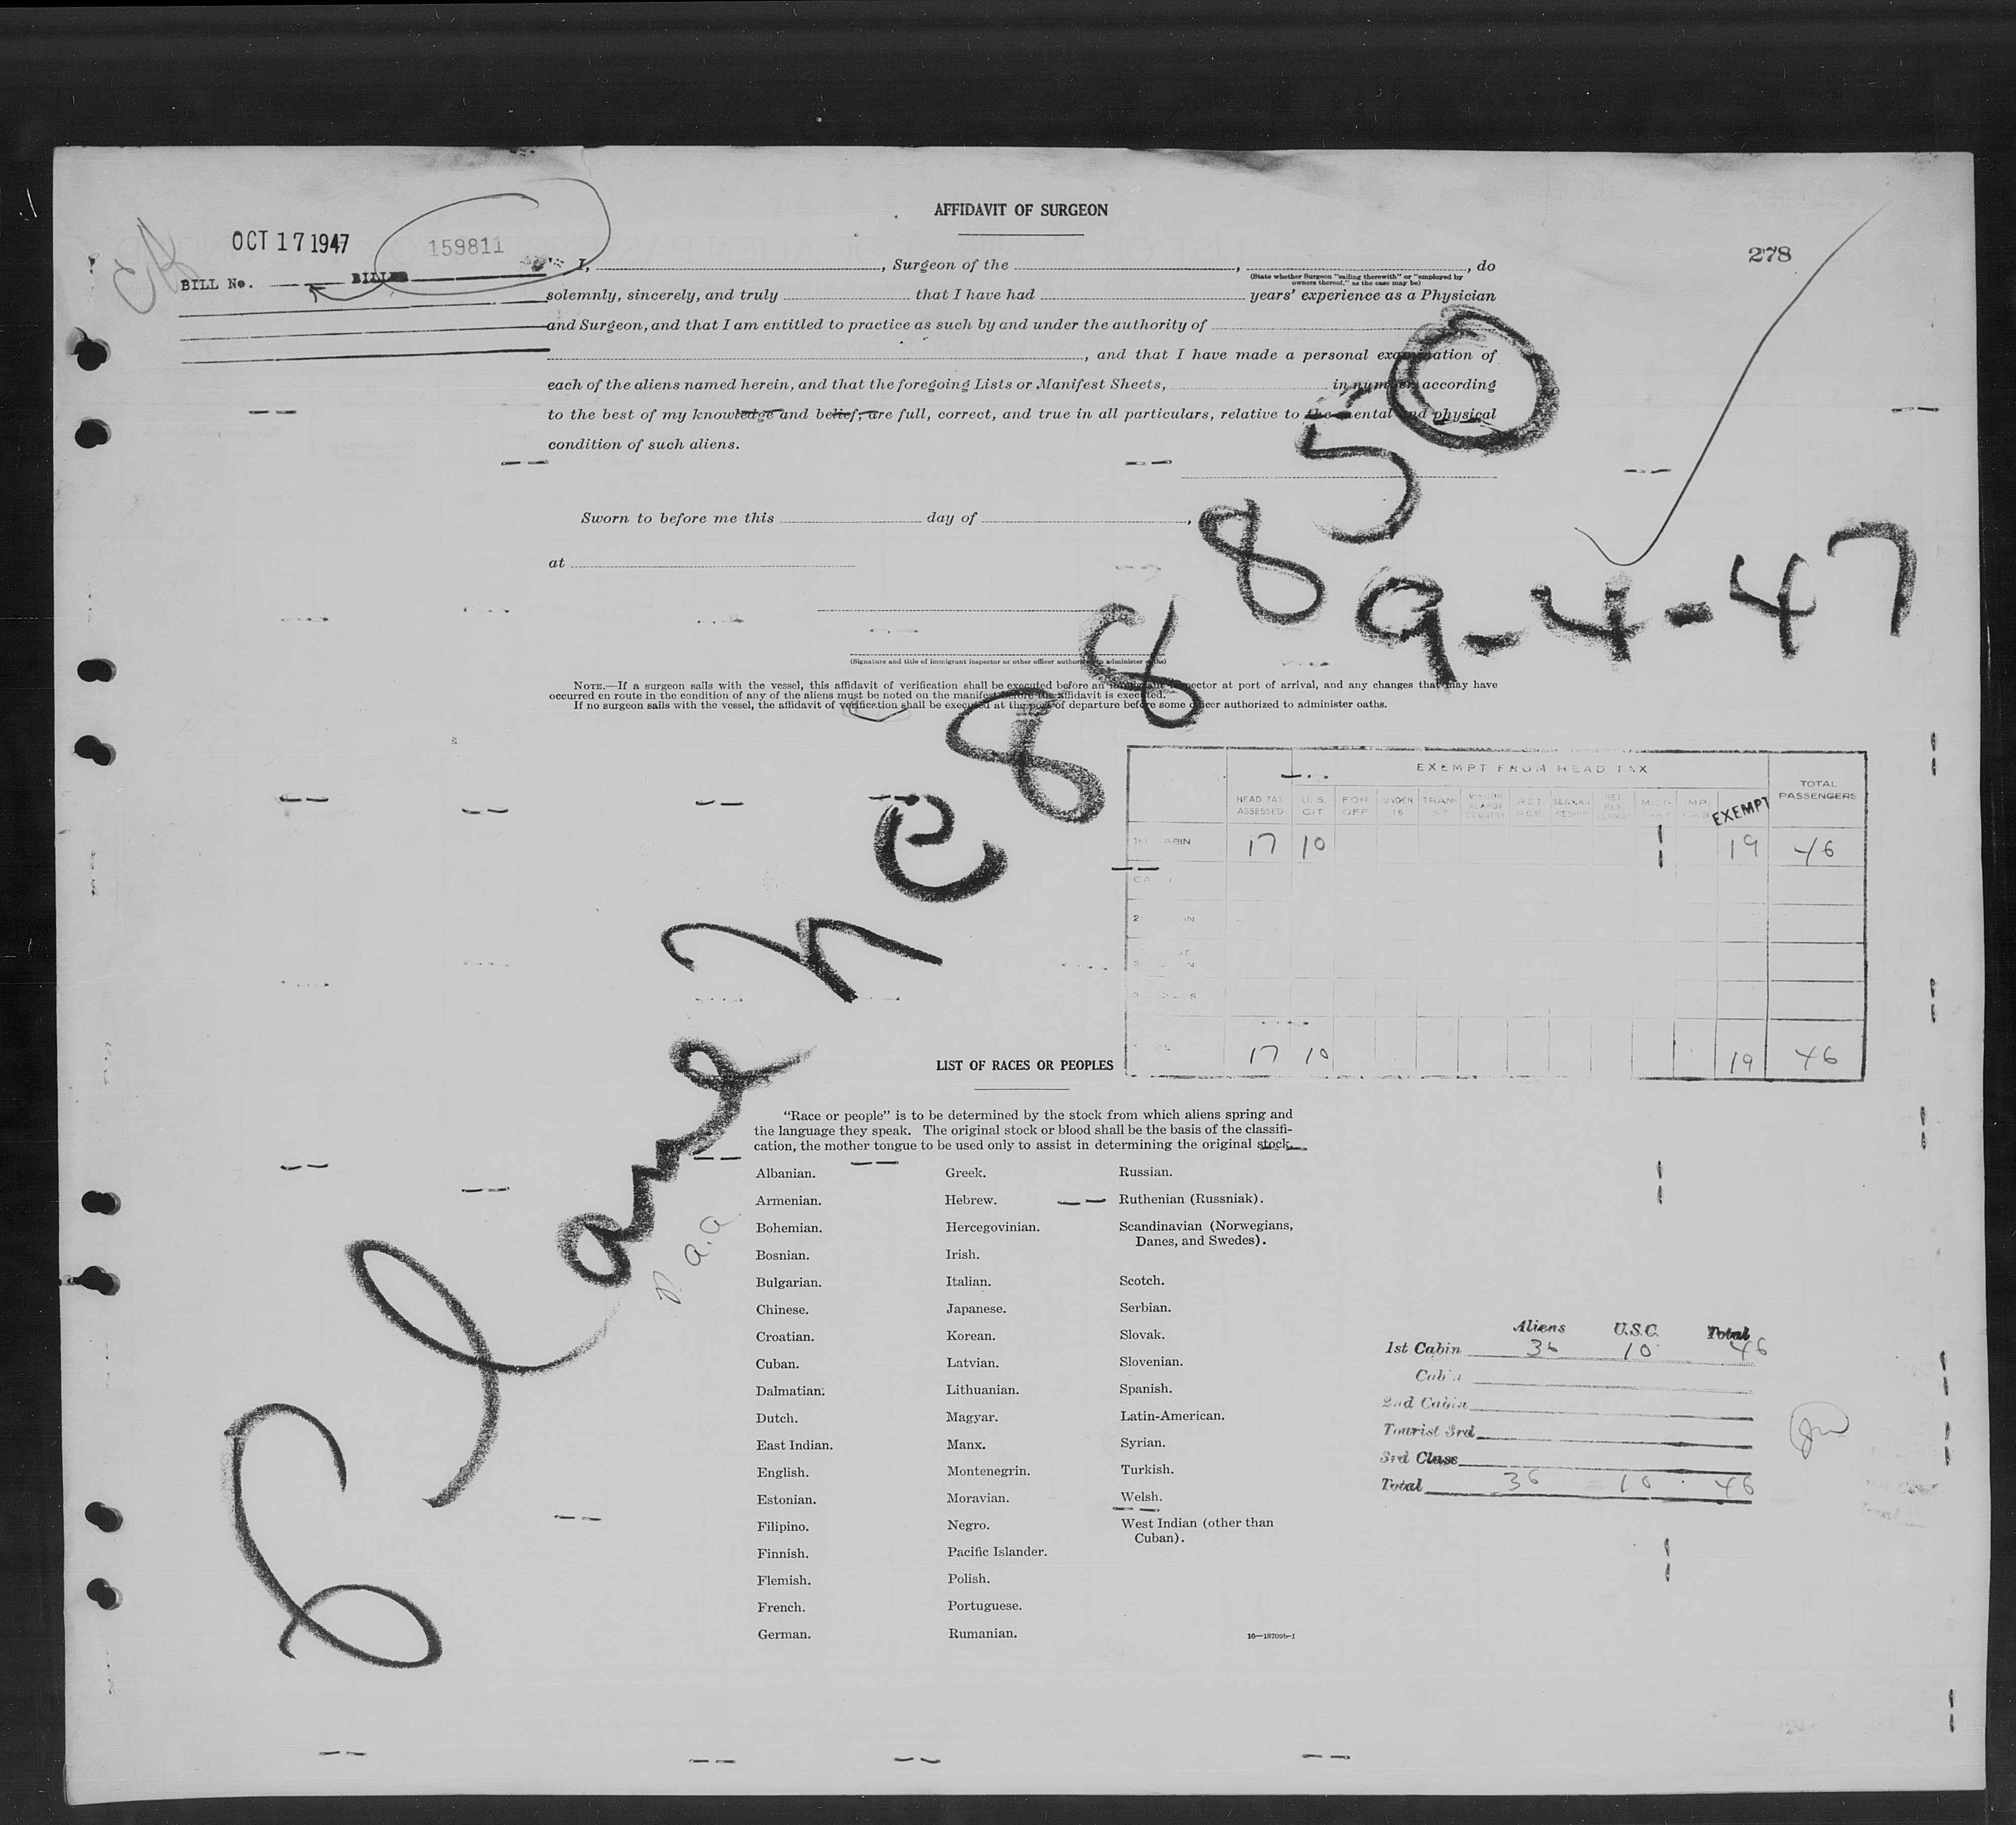 AFFIDAVIT OF SURGEON
OCT 17 1947
159811
278
BILL No. BILLED
I, , Surgeon of the , , do
(State whether Surgeon "sailing therewith" or "employed by
owners thereof," as the case may be)
solemnly, sincerely, and truly that I have had years' experience as a Physician
and Surgeon, and that I am entitled to practice as such by and under the authority of
, and that I have made a personal examination of
each of the aliens named herein, and that the foregoing Lists or Manifest Sheets, in number, according
to the best of my knowledge and belief, are full, correct, and true in all particulars, relative to the mental and physical
condition of such aliens.
Sworn to before me this day of ,
at
(Signature and title of immigrant inspector or other officer authorized to administer oaths)
NOTE.—If a surgeon sails with the vessel, this affidavit of verification shall be executed before an immigrant inspector at port of arrival, and any changes that may have
occurred en route in the condition of any of the aliens must be noted on the manifest before the affidavit is executed.
If no surgeon sails with the vessel, the affidavit of verification shall be executed at the port of departure before some officer authorized to administer oaths.
Plane NC 88850
9-4-47
P.a.a
EXEMPT FROM HEAD TAX
HEAD TAX ASSESSED U.S. CIT. FOR OFF UNDER 16 TRAN- SIT EXEMPT TOTAL PASSENGERS
17 10 19 46
17 10 19 46
LIST OF RACES OR PEOPLES
"Race or people" is to be determined by the stock from which aliens spring and
the language they speak. The original stock or blood shall be the basis of the classifi-
cation, the mother tongue to be used only to assist in determining the original stock.
Albanian. Greek. Russian.
Armenian. Hebrew. Ruthenian (Russniak).
Bohemian. Hercegovinian. Scandinavian (Norwegians,
Danes, and Swedes).
Bosnian. Irish.
Bulgarian. Italian. Scotch.
Chinese. Japanese. Serbian.
Croatian. Korean. Slovak.
Cuban. Latvian. Slovenian.
Dalmatian. Lithuanian. Spanish.
Dutch. Magyar. Latin-American.
East Indian. Manx. Syrian.
English. Montenegrin. Turkish.
Estonian. Moravian. Welsh.
Filipino. Negro. West Indian (other than
Cuban).
Finnish. Pacific Islander.
Flemish. Polish.
French. Portuguese.
German. Rumanian.
16—18709b-1
Aliens U.S.C. Total
1st Cabin 36 10 46
Cabin
2nd Cabin
Tourist 3rd
3rd Class
Total 36 10 46